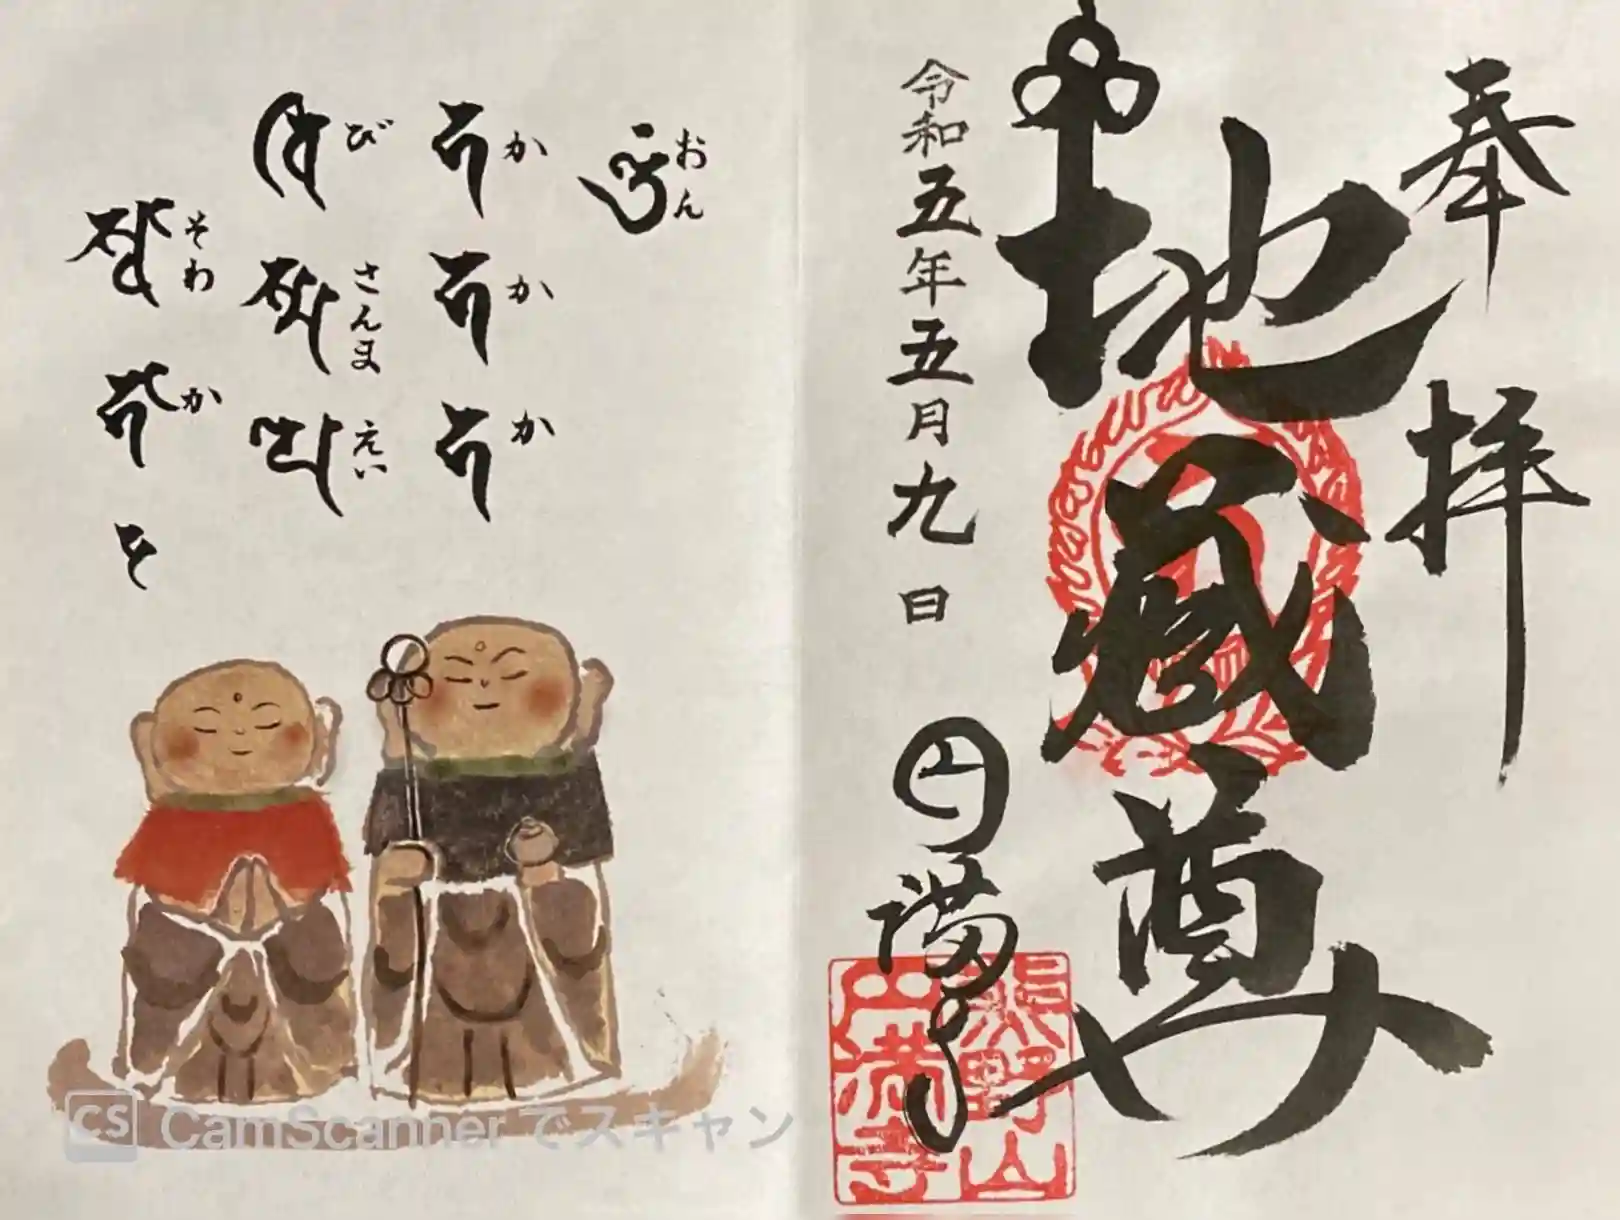 奉拝
地蔵尊
令和五年五月九日
円満寺
熊野山
円満寺
おん
か か か
び さんま えい
そわ か
CS CamScanner でスキャン